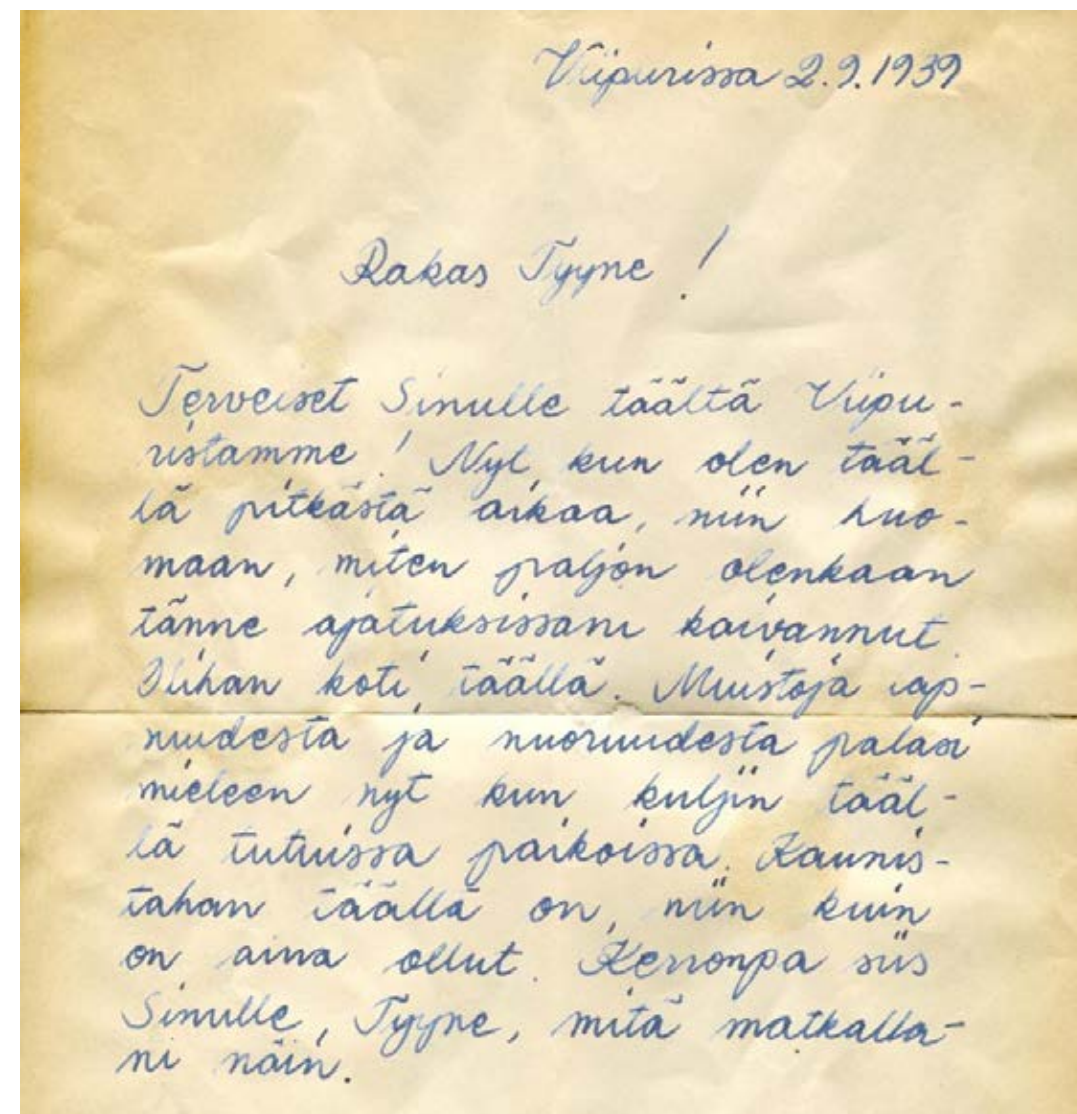 Viipurissa 2.9.1939
Rakas Tyyne !
Terveiset Sinulle täältä Viipu-
ristamme ! Nyt, kun olen tääl-
lä pitkästä aikaa, niin huo-
maan, miten paljon olenkaan
tänne ajatuksissani kaivannut.
Olihan koti täällä. Muistoja lap-
suudesta ja nuoruudesta palasi
mieleen nyt kun kuljin tääl-
lä tutuissa paikoissa. Kaunis-
tahan täällä on, niin kuin
on aina ollut. Kerronpa siis
Sinulle, Tyyne, mitä matkalla-
ni näin.